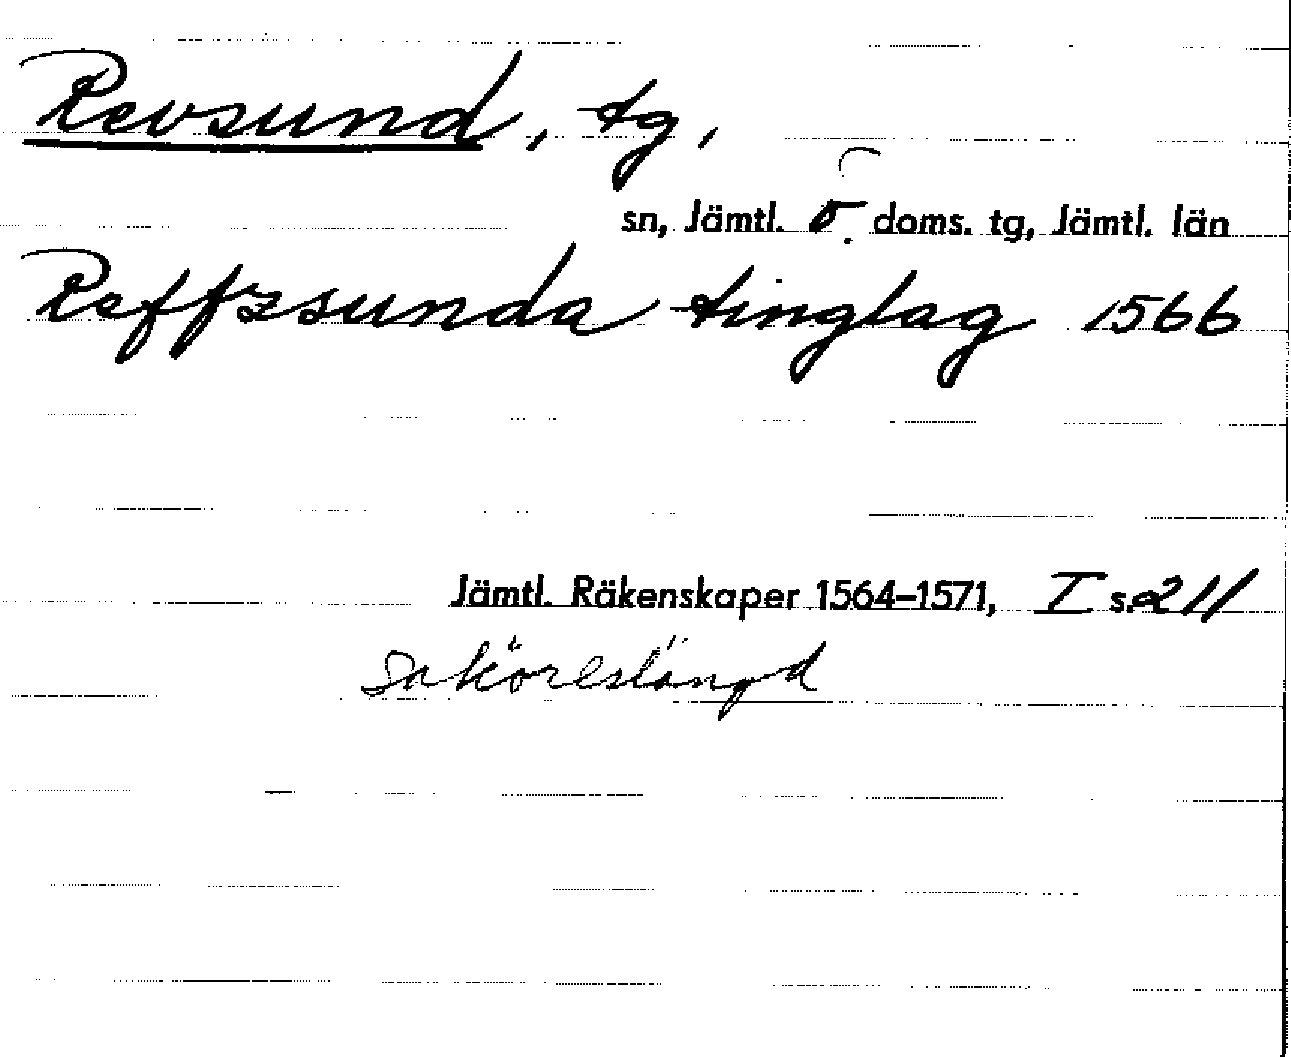 Revsund, tg,
sn, Jämtl. ö. doms. tg, Jämtl. län
Reffzsunda tinglag 1566
Jämtl. Räkenskaper 1564–1571, I s. 211
Saköreslängd